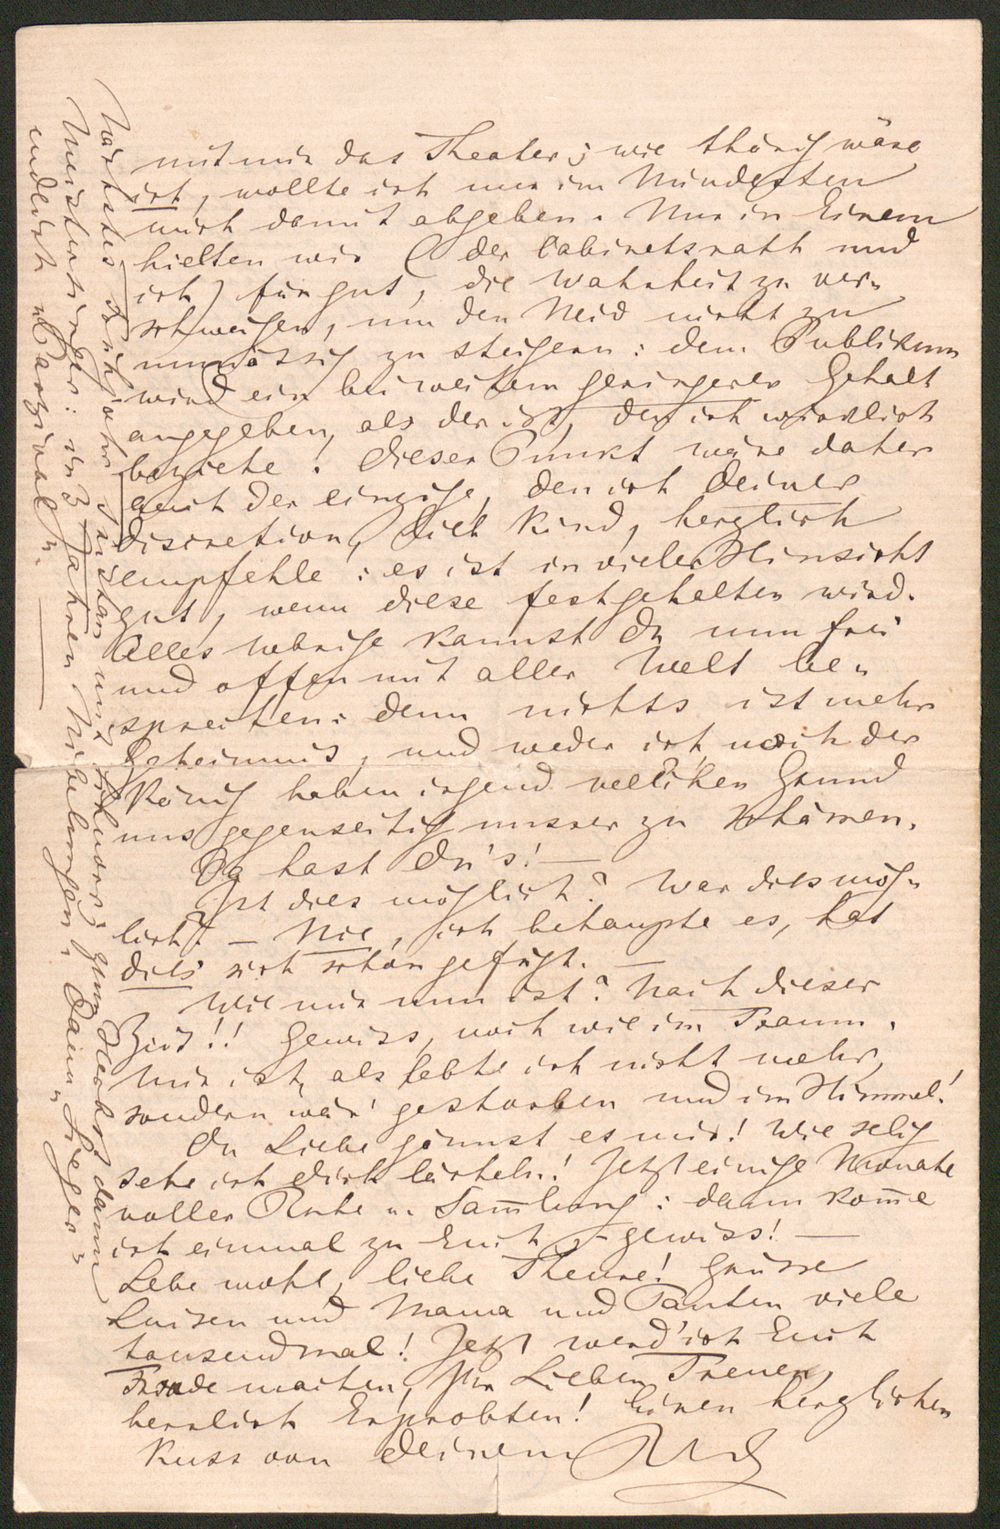 mit mir das Theater; wie thörig wäre
ich, wollte ich nur im Mindesten
mich damit abgeben. Nur in Einem
hielten wir (der Cabinetsrath und
ich) für gut, die Wahrheit zu ver-
schweigen, um den Neid nicht zu
unmässig zu steigern: dem Publikum
wird ein bei weitem geringerer Gehalt
angegeben, als der ist, den ich wirklich
beziehe! Dieser Punkt wäre daher
auch der einzige, den ich Deiner
Discretion, lieb Kind, herzlich
empfehle: es ist in vieler Hinsicht
gut, wenn diese festgehalten wird.
Alles Uebrige kannst Du nun frei
und offen mit aller Welt be-
sprechen: denn nichts ist mehr
Geheimnis, und weder ich noch der
König haben irgend welchen Grund
uns gegenseitig unsrer zu schämen.
Da hast Du's! —
Ist dies möglich? War dies mög-
lich? — Nie, ich behaupte es, hat
dies sich schon gefügt. —
Wie mir nun ist? Nach dieser
Zeit!! Gewiss, noch wie im Traum.
Mir ist, als lebte ich nicht mehr,
sondern wär' gestorben und im Himmel!
Du Liebe gönnst es mir! Wie selig
sehe ich Dich lächeln! Jetzt einige Monate
voller Ruhe u. Sam̄lung: dann kom̄e
ich einmal zu Euch, — gewiss! —
Lebe wohl, liebe Theure! Grüsse
Luisen und Mama und Tanten viele
tausendmal! Jetzt werd' ich Euch
Freude machen, Ihr Lieben, Treuen,
herrlich Erprobten! Einen herzlichen
Kuss von Deinem RW
Nächstes Frühjahr Tristan mit Schnorr; zum Herbst dann
Meistersinger: in 3 Jahren Nibelungen. Dann „Sieger"
endlich „Parzival".